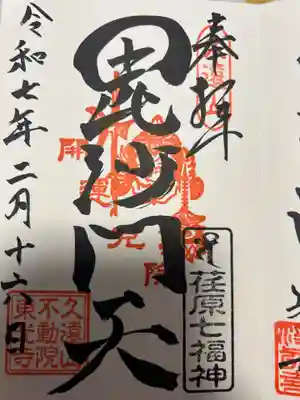 奉拝
荏原七福神
毘沙門天
開運
令和七年二月十六日
久遠山
不動院
東光寺